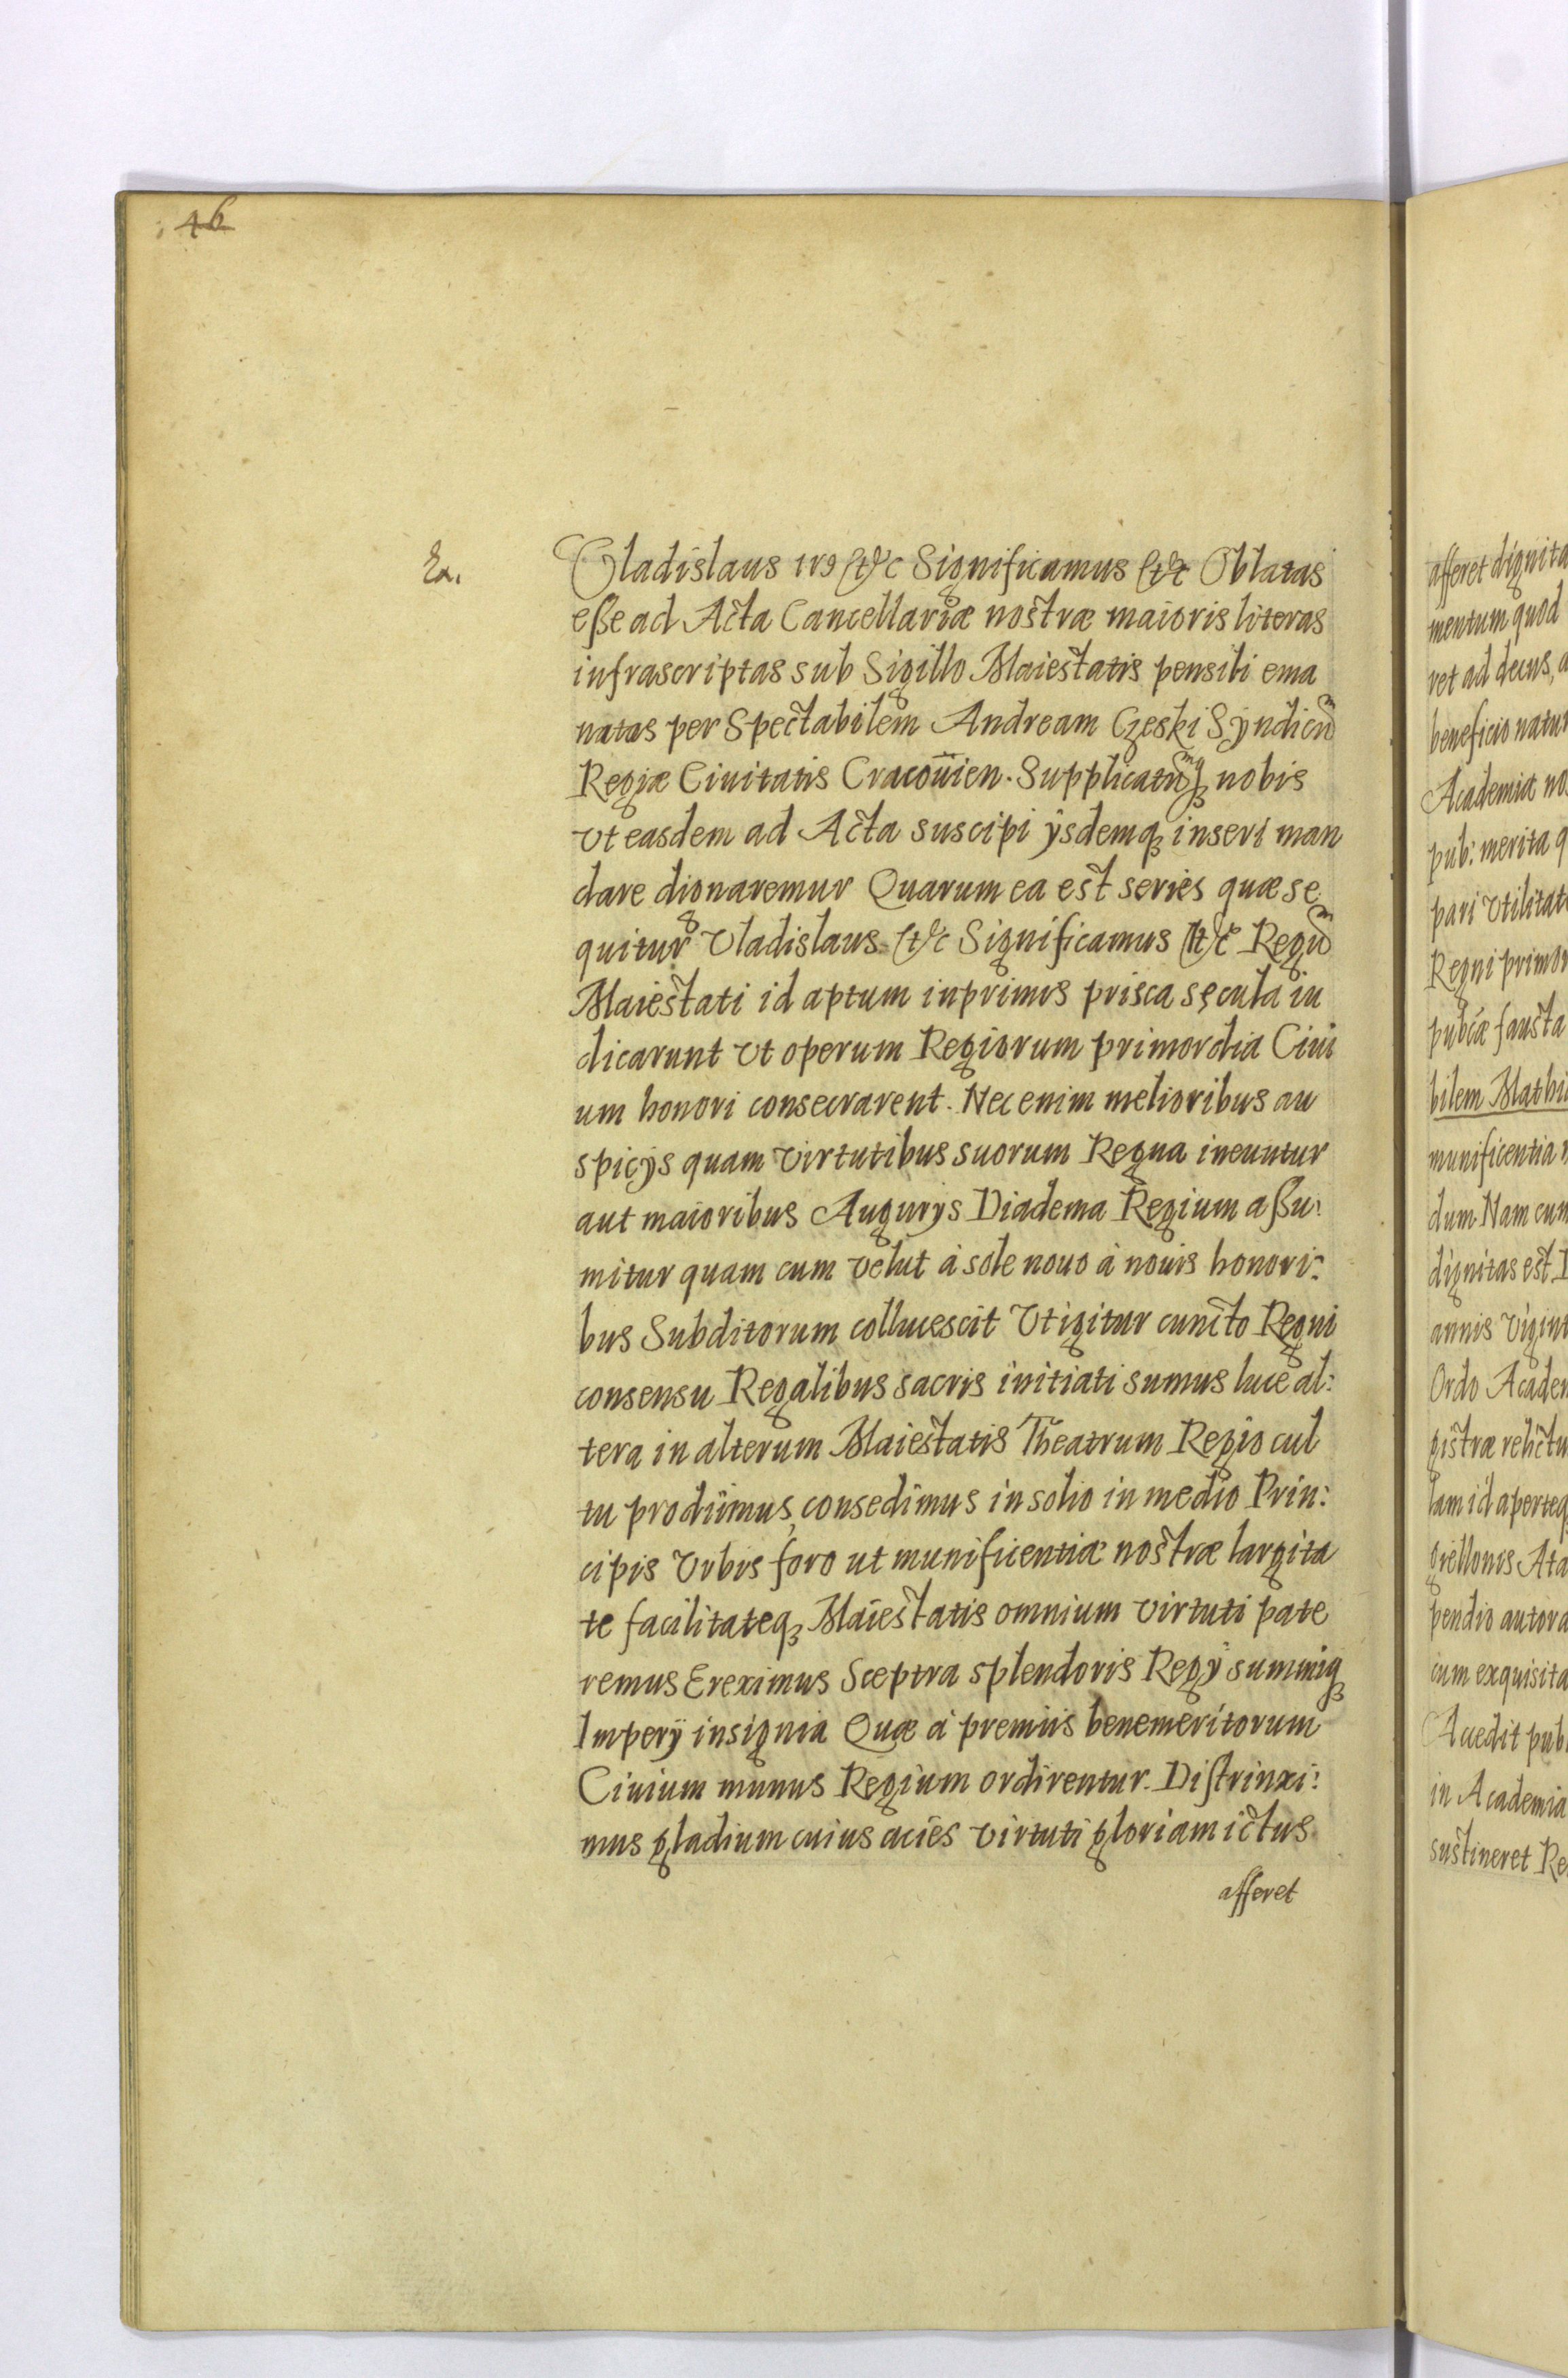 46
Ex.
Vladislaus IVꝰ &c Significamus &c Oblatas
eße ad Acta Cancellariæ nostræ maioris literas
infrascriptas sub Sigillo Maiestatis pensili ema
natas per Spectabilem Andream Czeski Syndicũ
Regiæ Ciuitatis Cracouien. Supplicatũqꝫ nobis
vt easdem ad Acta suscipi ÿsdemqꝫ inseri man
dare dignaremur Quarum ea est series quæ se
quitur Vladislaus &c Significamus &c Regũ
Maiestati id aptum inprimis prisca sęcula iu
dicarunt vt operum Regiorum primordia Ciui
um honori consecrarent. Nec enim melioribus au
spicÿs quam virtutibus suorum Regna ineuntur
aut maioribus Augurÿs Diadema Regium aßu:
mitur quam cum velut à sole nouo à nouis honori:
bus Subditorum collucescit Vt igitur cuncto Regni
consensu Regalibus sacris initiati sumus luce al:
tera in alterum Maiestatis Theatrum Regio cul
tu prodiimus, consedimus in solio in medio Prin:
cipis Vrbis foro ut munificentiæ nostræ largita
te facilitateqꝫ Maiestatis omnium virtuti pate
remus Ereximus Sceptra splendoris Regÿ summiqꝫ
Imperÿ insignia Quæ à premiis benemeritorum
Ciuium munus Regium ordirentur. Distrinxi:
mus gladium cuius acies virtuti gloriam ictus
afferet
afferet dignita
mentum quod
ret ad decus, a
beneficio natur
Academia nos
pub: merita q
pari vtilitat
Regni primor
pubcæ fausta
bilem Mathi
munificentia n
dum Nam cum
dignitas est
annis Vigint
Ordo Academ
gistræ relictu
lam id aperteqꝫ
giellonis Ata
pendio autora
cum exquisita
Accedit pub
in Academia
sustineret Re